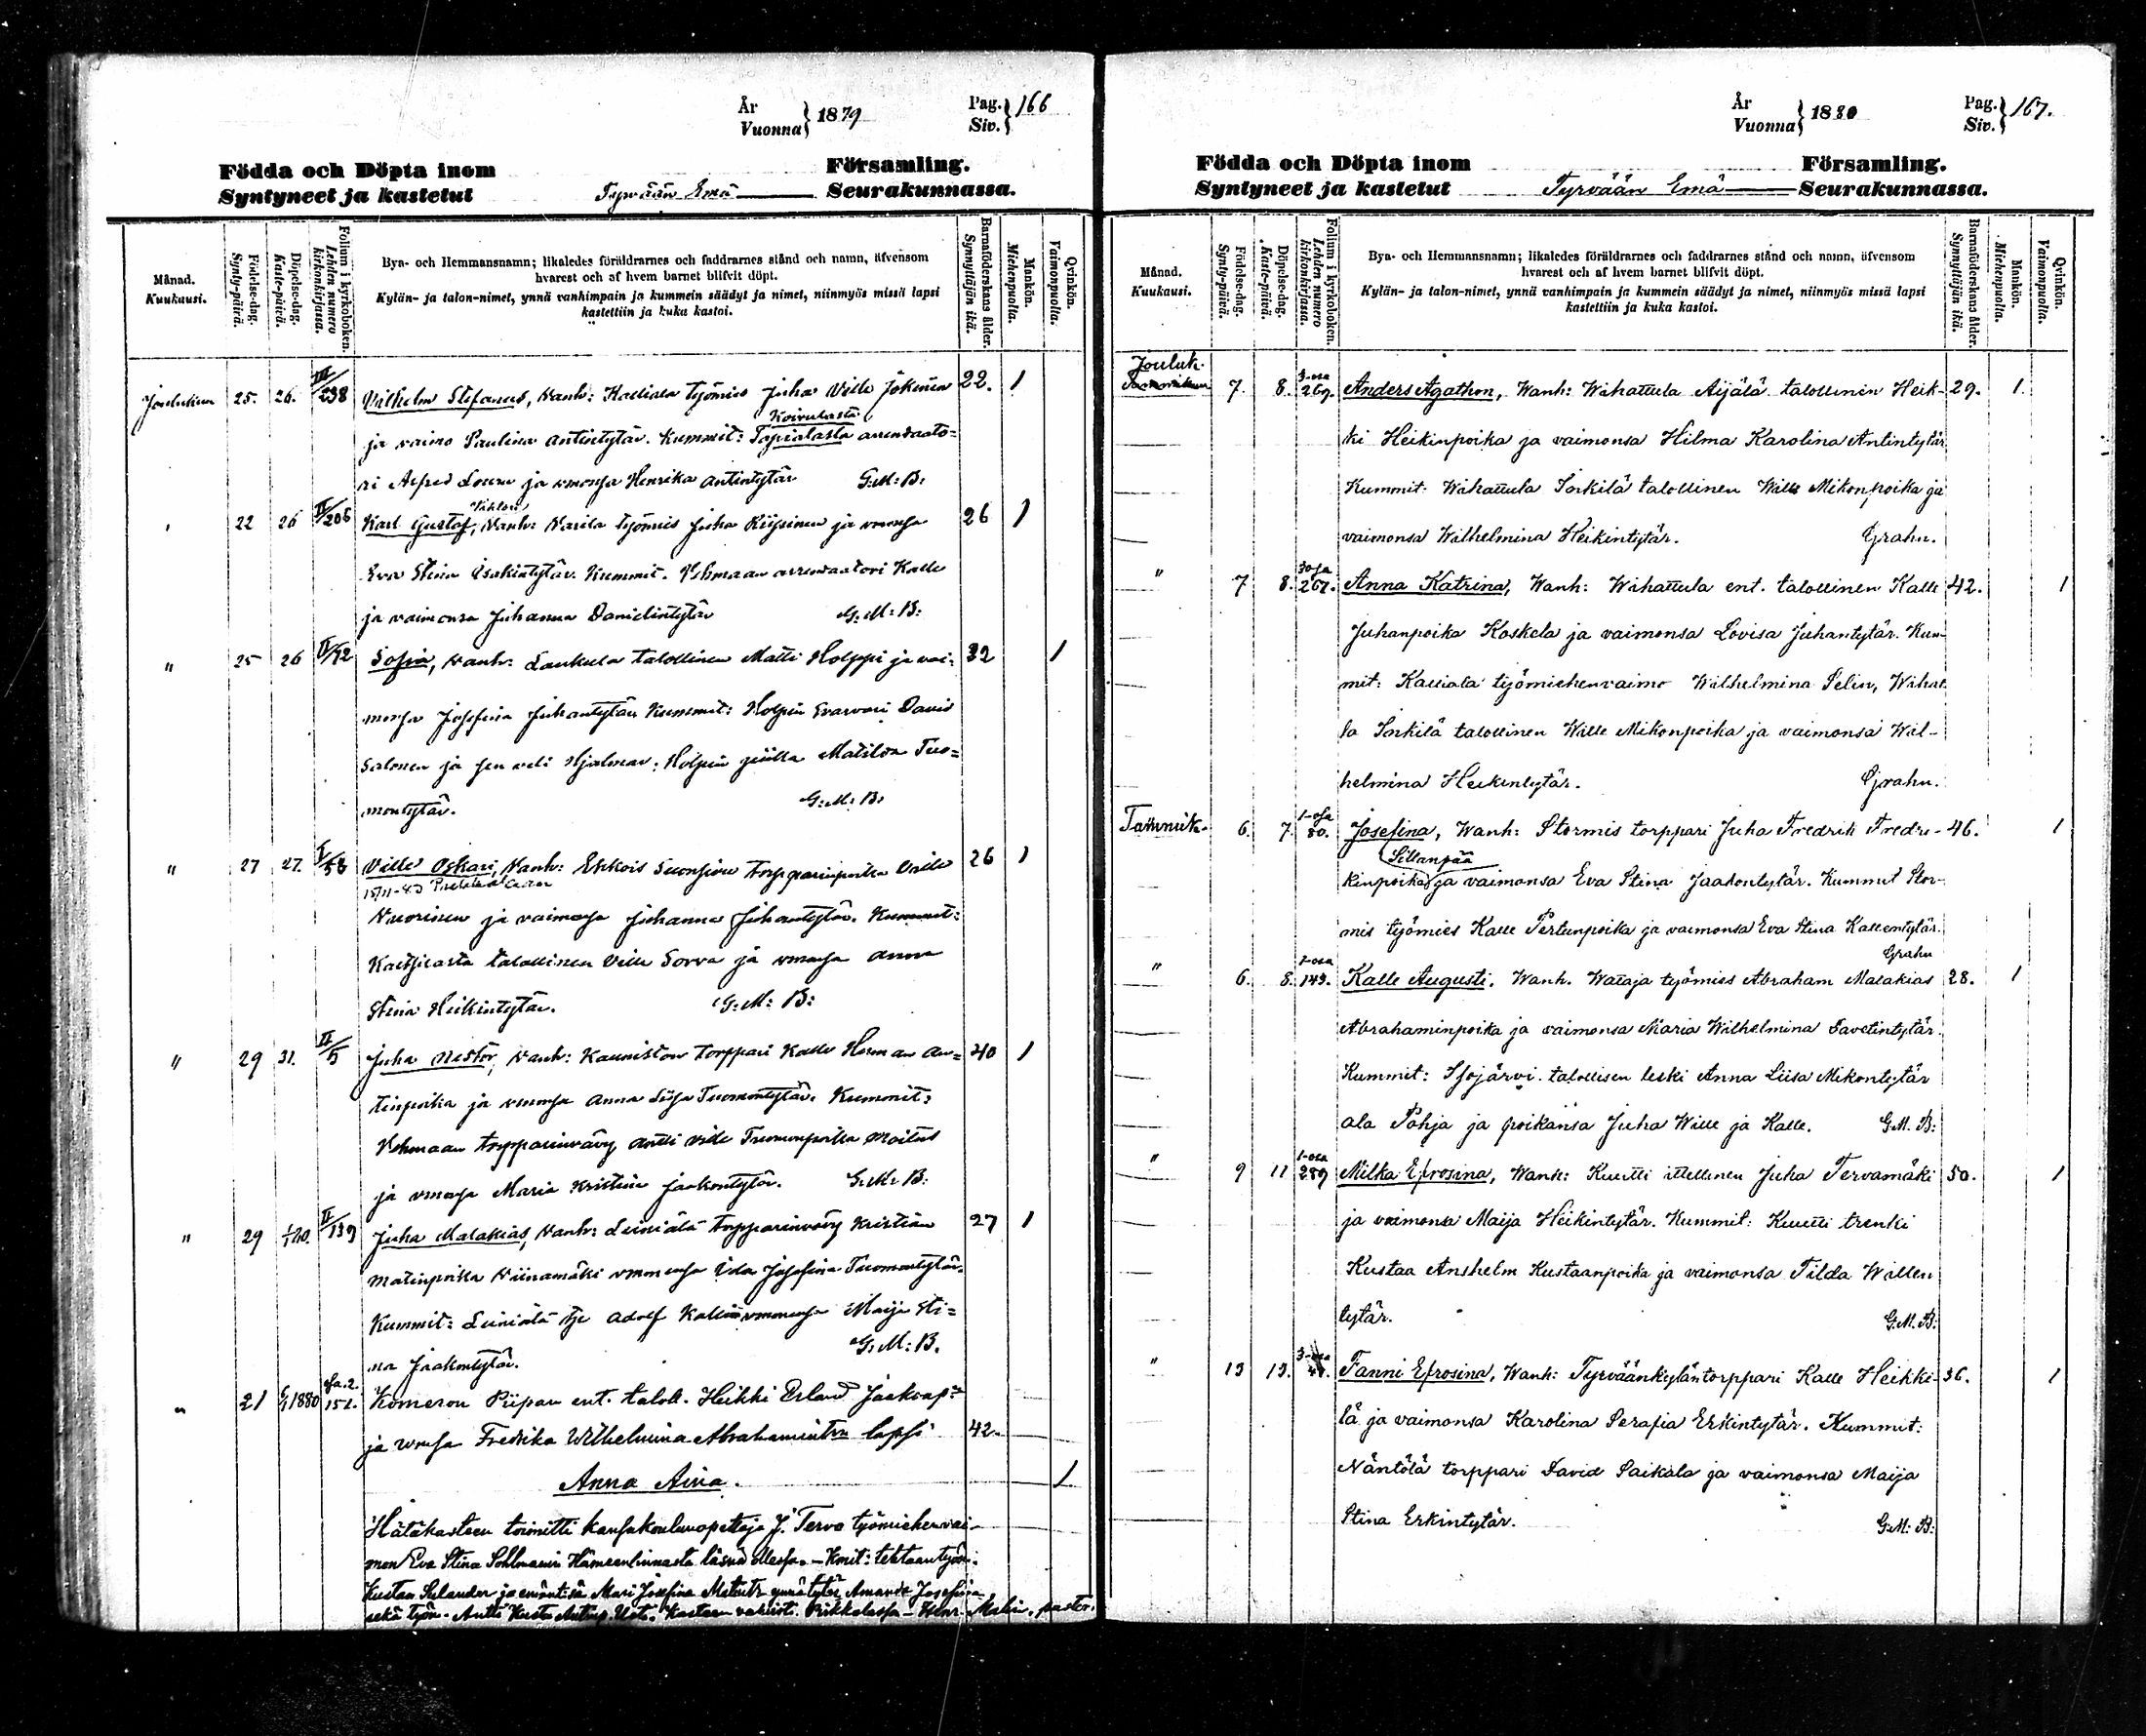 År
Vuonna } 1879
Pag.
Siv. } 166
Födda och Döpta inom Församling.
Syntyneet ja kastetut Tyrvään Emä Seurakunnassa.
Månad.
Kuukausi.
Födelse-dag.
Synty-päivä.
Döpelse-dag.
Kaste-päivä.
Folium i kyrkoboken.
Lehden numero kirkonkirjassa.
Bya- och Hemmansnamn; likaledes föräldrarnes och faddrarnes stånd och namn, äfvensom
hvarest och af hvem barnet blifvit döpt.
Kylän- ja talon-nimet, ynnä vanhimpain ja kummein säädyt ja nimet, niinmyös missä lapsi
kastettiin ja kuka kastoi.
Barnaföderskans ålder.
Synnyttäjän ikä.
Mankön.
Miehenpuolta.
Qvinkön.
Vaimonpuolta.
Joulukuu 25. 26. III/238 Vilhelm Stefanus, Vanh: Kaltiala työmies Juha Ville Jokinen 22. 1
Koivulasta
ja vaimo Paulina Antintytär. Kummit: Tapialasta arrendaato-
ri Alfred ja vmonsa Henrika Antintytär G:M:B:
22 26 II/206 Karl Gustaf, Vanh: työmies Juha ja vmonsa 26 1
Eva Stina Isakintytär. Kummit. Vehmaan arrendaatori Kalle
ja vaimonsa Juhanna Danielintytär G:M:B:
" 25 26 II/72 Sofia, Vanh: Laukula talollinen Matti Holppi ja vai- 32 1
monsa Josefina Juhantytär Kummit: Holpin David
Salonen ja sen veli Hjalmar, Holpin piika Matilda Tuo-
montytär. G:M:B:
" 27 27. I/58 Ville Oskari, Vanh: torpparinpoika Ville 26 1
Nuorinen ja vaimonsa Johanna Juhantytär. Kummit:
talollinen Ville Sorva ja vmonsa Anna
Stina Heikintytär. G:M:B:
" 29 31. II/5 Juha Nestor, Vanh: Kauniston torppari Kalle Herman An- 40 1
tinpoika ja vmonsa Anna Liisa Tuomontytär. Kummit:
Vehmaan torpparinvävy Antti Ville Tuomonpoika
ja vmonsa Maria Kristina Jaakontytär. G:M:B:
" 29 1/1 80. II/139 Juha Malakias, Vanh: Leiniälä torpparinvävy Kristian 27 1
Matinpoika Viinamäki vmonensa Ida Josefina Tuomontytär.
Kummit: Leiniälä Adolf Kallio vmonensa Maija Sti-
na Jaakontytär. G:M:B.
" 21 1880 osa.2. 151. Komeron Piipan ent. taloll. Heikki Erland Jaakonp:
ja vmonsa Fredrika Wilhelmina Abrahamintr lapsi 42.
Anna Aina. 1
Hätäkasteen toimitti kansakoulunopettaja J. Tervo työmiehen vai-
mon Eva Stina Sohlmanin Hämeenlinnasta läsnä ollessa. - Kmit: tehtaantyöm.
Kustaa Selander ja emäntänsä Mari Josefina Matintr ynnä tytär Amanda Josefiina
sekä työm. Antti Kusta Kasteen vahvist. Pirkkalassa - Malin. pastor.
År
Vuonna } 1880
Pag.
Siv. } 167.
Födda och Döpta inom Församling.
Syntyneet ja kastetut Tyrvään Emä Seurakunnassa.
Månad.
Kuukausi.
Födelse-dag.
Synty-päivä.
Döpelse-dag.
Kaste-päivä.
Folium i kyrkoboken.
Lehden numero kirkonkirjassa.
Bya- och Hemmansnamn; likaledes föräldrarnes och faddrarnes stånd och namn, äfvensom
hvarest och af hvem barnet blifvit döpt.
Kylän- ja talon-nimet, ynnä vanhimpain ja kummein säädyt ja nimet, niinmyös missä lapsi
kastettiin ja kuka kastoi.
Barnaföderskans ålder.
Synnyttäjän ikä.
Mankön.
Miehenpuolta.
Qvinkön.
Vaimonpuolta.
Jouluk.
7. 8. 3-osa 269. Anders Agathon, Wanh: Wihattula Äijälä talollinen Heik- 29. 1.
ki Heikinpoika ja vaimonsa Hilma Karolina Antintytär
Kummit: Wihattula Sorkilä talollinen Wille Mikonpoika ja
vaimonsa Wilhelmina Heikintytär. Grahn.
" 7 8. 3 osa 267. Anna Katrina, Wanh: Wihattula ent. talollinen Kalle 42. 1
Juhanpoika Koskela ja vaimonsa Lovisa Juhantytär. Kum-
mit: Kaltiala työmiehenvaimo Wilhelmina Selin, Wihat
la Sorkilä talollinen Wille Mikonpoika ja vaimonsa Wil-
helmina Heikintytär. Grahn.
Tammik. 6. 7. 1-osa 80. Josefina, Wanh: Stormis torppari Juha Fredrik Fredri- 46. 1
Sillanpää
kinpoika ja vaimonsa Eva Stina Jaakontytär. Kummit Stor-
mis työmies Kalle Pertunpoika ja vaimonsa Eva Stina Kallentytär.
Grahn
" 6. 8. 1-osa 143. Kalle Augusti. Wanh. Wataja työmies Abraham Malakias 28. 1
Abrahaminpoika ja vaimonsa Maria Wilhelmina Davetintytär.
Kummit: Isojärvi talollisen leski Anna Liisa Mikontytär
ala Pohja ja poikansa Juha Wille ja Kalle. G.M. B:
" 9 11 1-osa 289 Milka Efrosina, Wanh: Kuutti ittellinen Juha Tervamäki 50. 1
ja vaimonsa Maija Heikintytär. Kummit: Kuutti trenki
Kustaa Anshelm Kustaanpoika ja vaimonsa Tilda Willen
tytär. G.M. B:
" 13 13. 3-osa Fanni Efrosina, Wanh: Tyrväänkylän torppari Kalle Heikki- 36. 1
lä ja vaimonsa Karolina Serafia Erkintytär. Kummit:
Näntölä torppari David Saikala ja vaimonsa Maija
Stina Erkintytär. G.M: B: